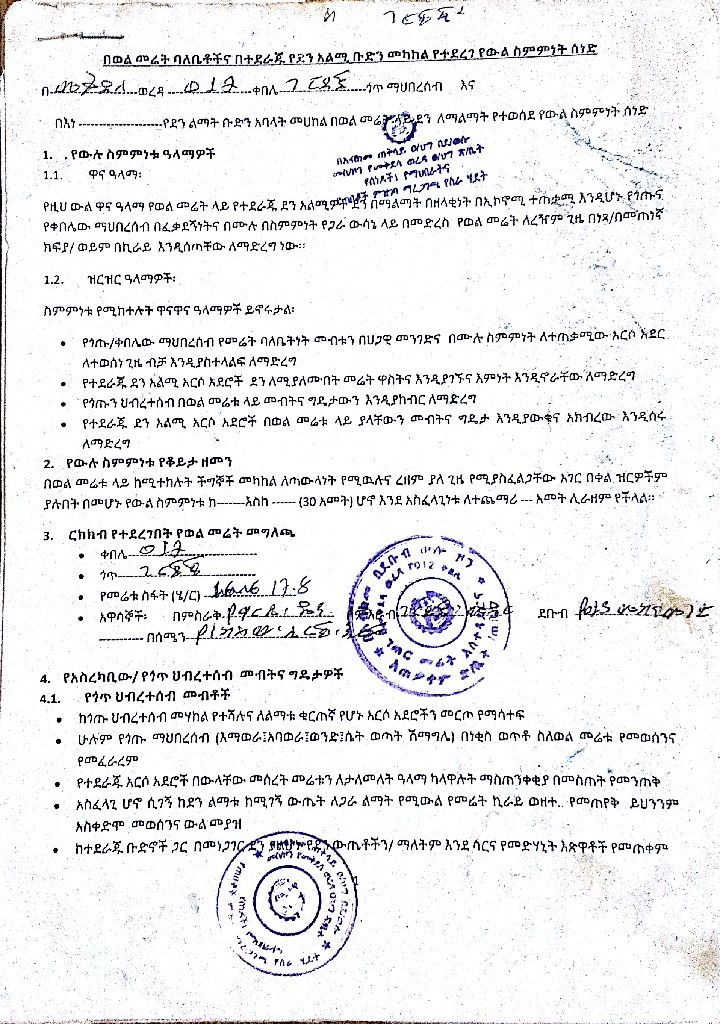 በወል መሬት ባለቤቶችና በተደራጁ የደን አልሚ ቡድን መካከል የተደረገ የውል ስምምነት ሰነድ
በ ወረዳ ወገዳ ቀበሌ ጎጥ ማህበረሰብ እና
በእነ ------------------የደን ልማት ቡድን አባላት መሀከል በወል መሬት ላይ ደን ለማልማት የተወሰደ የውል ስምምነት ሰነድ
1. . የውሉ ስምምነቱ ዓላማዎች
1.1. ዋና ዓላማ፡
የዚህ ውል ዋና ዓላማ የወል መሬት ላይ የተደራጁ ደን አልሚዎች ደን በማልማት በዘላቂነት በኢኮኖሚ ተጠቃሚ እንዲሆኑ የጎጡና
የቀበሌው ማህበረሰብ በፈቃደኝነትና በሙሉ በስምምነት የጋራ ውሳኔ ላይ በመድረስ የወል መሬት ለረዥም ጊዜ በነጻ/በመጠነኛ
ክፍያ/ ወይም በኪራይ እንዲሰጣቸው ለማድረግ ነው፡፡
1.2. ዝርዝር ዓላማዎች፡
ስምምነቱ የሚከተሉት ዋናዋና ዓላማዎች ይኖሩታል፡
• የጎጡ/ቀበሌው ማህበረሰብ የመሬት ባለቤትነት መብቱን በሀጋዊ መንገድና በሙሉ ስምምነት ለተጠቃሚው አርሶ አደር
ለተወሰነ ጊዜ ብቻ እንዲያስተላልፍ ለማድረግ
• የተደራጁ ደን አልሚ አርሶ አደሮች ደን ለሚያለሙበት መሬት ዋስትና እንዲያገኙና እምነት እንዲኖራቸው ለማድረግ
• የጎጡን ህብረተሰብ በወል መሬቱ ላይ መብትና ግዴታውን እንዲያከብር ለማድረግ
• የተደራጁ ደን አልሚ አርሶ አደሮች በወል መሬቱ ላይ ያላቸውን መብትና ግዴታ እንዲያውቁና አክብረው እንዲሰሩ
ለማድረግ
2. የውሉ ስምምነቱ የቆይታ ዘመን
በወል መሬቱ ላይ ከሚተከሉት ችግኞች መካከል ለጣውላነት የሚዉሉና ረዘም ያለ ጊዜ የሚያስፈልጋቸው አገር በቀል ዝርዎችም
ያሉበት በመሆኑ የውል ስምምነቱ ከ-------እስከ ------ (30 አመት) ሆኖ እንደ አስፈላጊነቱ ለተጨማሪ --- አመት ሊራዘም የችላል፡፡
3. ርክክብ የተደረገበት የወል መሬት መግለጫ
• ቀበሌ
• ጎጥ
• የመሬቱ ስፋት (ሄ/ር) 17.8
• አዋሳኞች፡ በምስራቅ በምእራብ ደቡብ
----------- በሰሜን
4. የአስረካቢው/ የጎጥ ህብረተሰብ መብትና ግዴታዎች
4.1. የጎጥ ህብረተሰብ መብቶች
• ከጎጡ ህብረተሰብ መሃከል የተሻሉና ለልማቱ ቁርጠኛ የሆኑ አርሶ አደሮችን መርጦ የማሳተፍ
• ሁሉም የጎጡ ማህበረሰብ (እማወራ፤አባወራ፤ወንድ፤ሴት ወጣት ሽማግሌ) በነቂስ ወጥቶ ስለወል መሬቱ የመወሰንና
የመፈራረም
• የተደራጁ አርሶ አደሮች በውላቸው መሰረት መሬቱን ለታለመለት ዓላማ ካላዋሉት ማስጠንቀቂያ በመስጠት የመንጠቅ
• አስፈላጊ ሆኖ ሲገኝ ከደን ልማቱ ከሚገኝ ውጤት ለጋራ ልማት የሚውል የመሬት ኪራይ ወዘተ.. የመጠየቅ ይህንንም
አስቀድሞ መወሰንና ውል መያዝ
• ከተደራጁ ቡድኖች ጋር በመነጋገር ደን ያልሆኑ የደን ውጤቶችን/ ማለትም እንደ ሳርና የመድሃኒት እጽዋቶች የመጠቀም